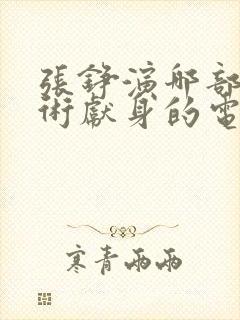 張錚演那部
術獻身的電
寒青雨雨